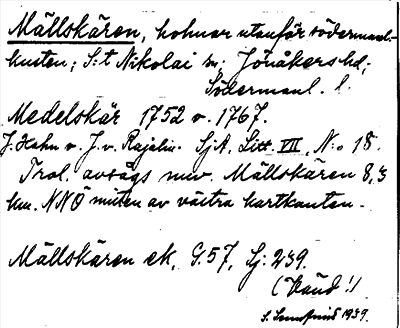 Mällskären, holmar utanför södermanl.-
kusten; S:t Nikolai sn; Jönåkers hd;
Södermanl. l.
Medelskär 1752 o. 1767.
J. Hahn o. J. v. Rajalin. SjA, Litt. VII, N:o 18.
Trol. avsågs nuv. Mällskären 8,3
km. NNÖ mitten av västra kartkanten.
Mällskären ek, G.57, Sj: 239.
S. 1939.